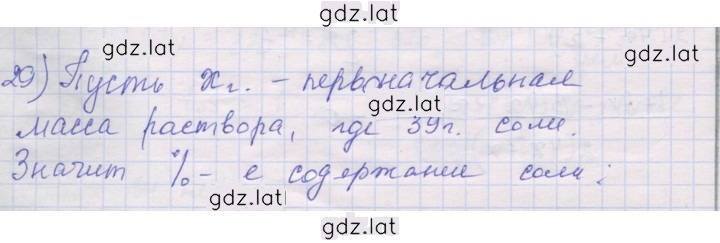 gdz.lat
gdz.lat
29) Пусть х г. - первоначальная
gdz.lat
масса раствора, где 39г. соли.
Значит %- е содержание соли;
gdz.lat
gdz.lat